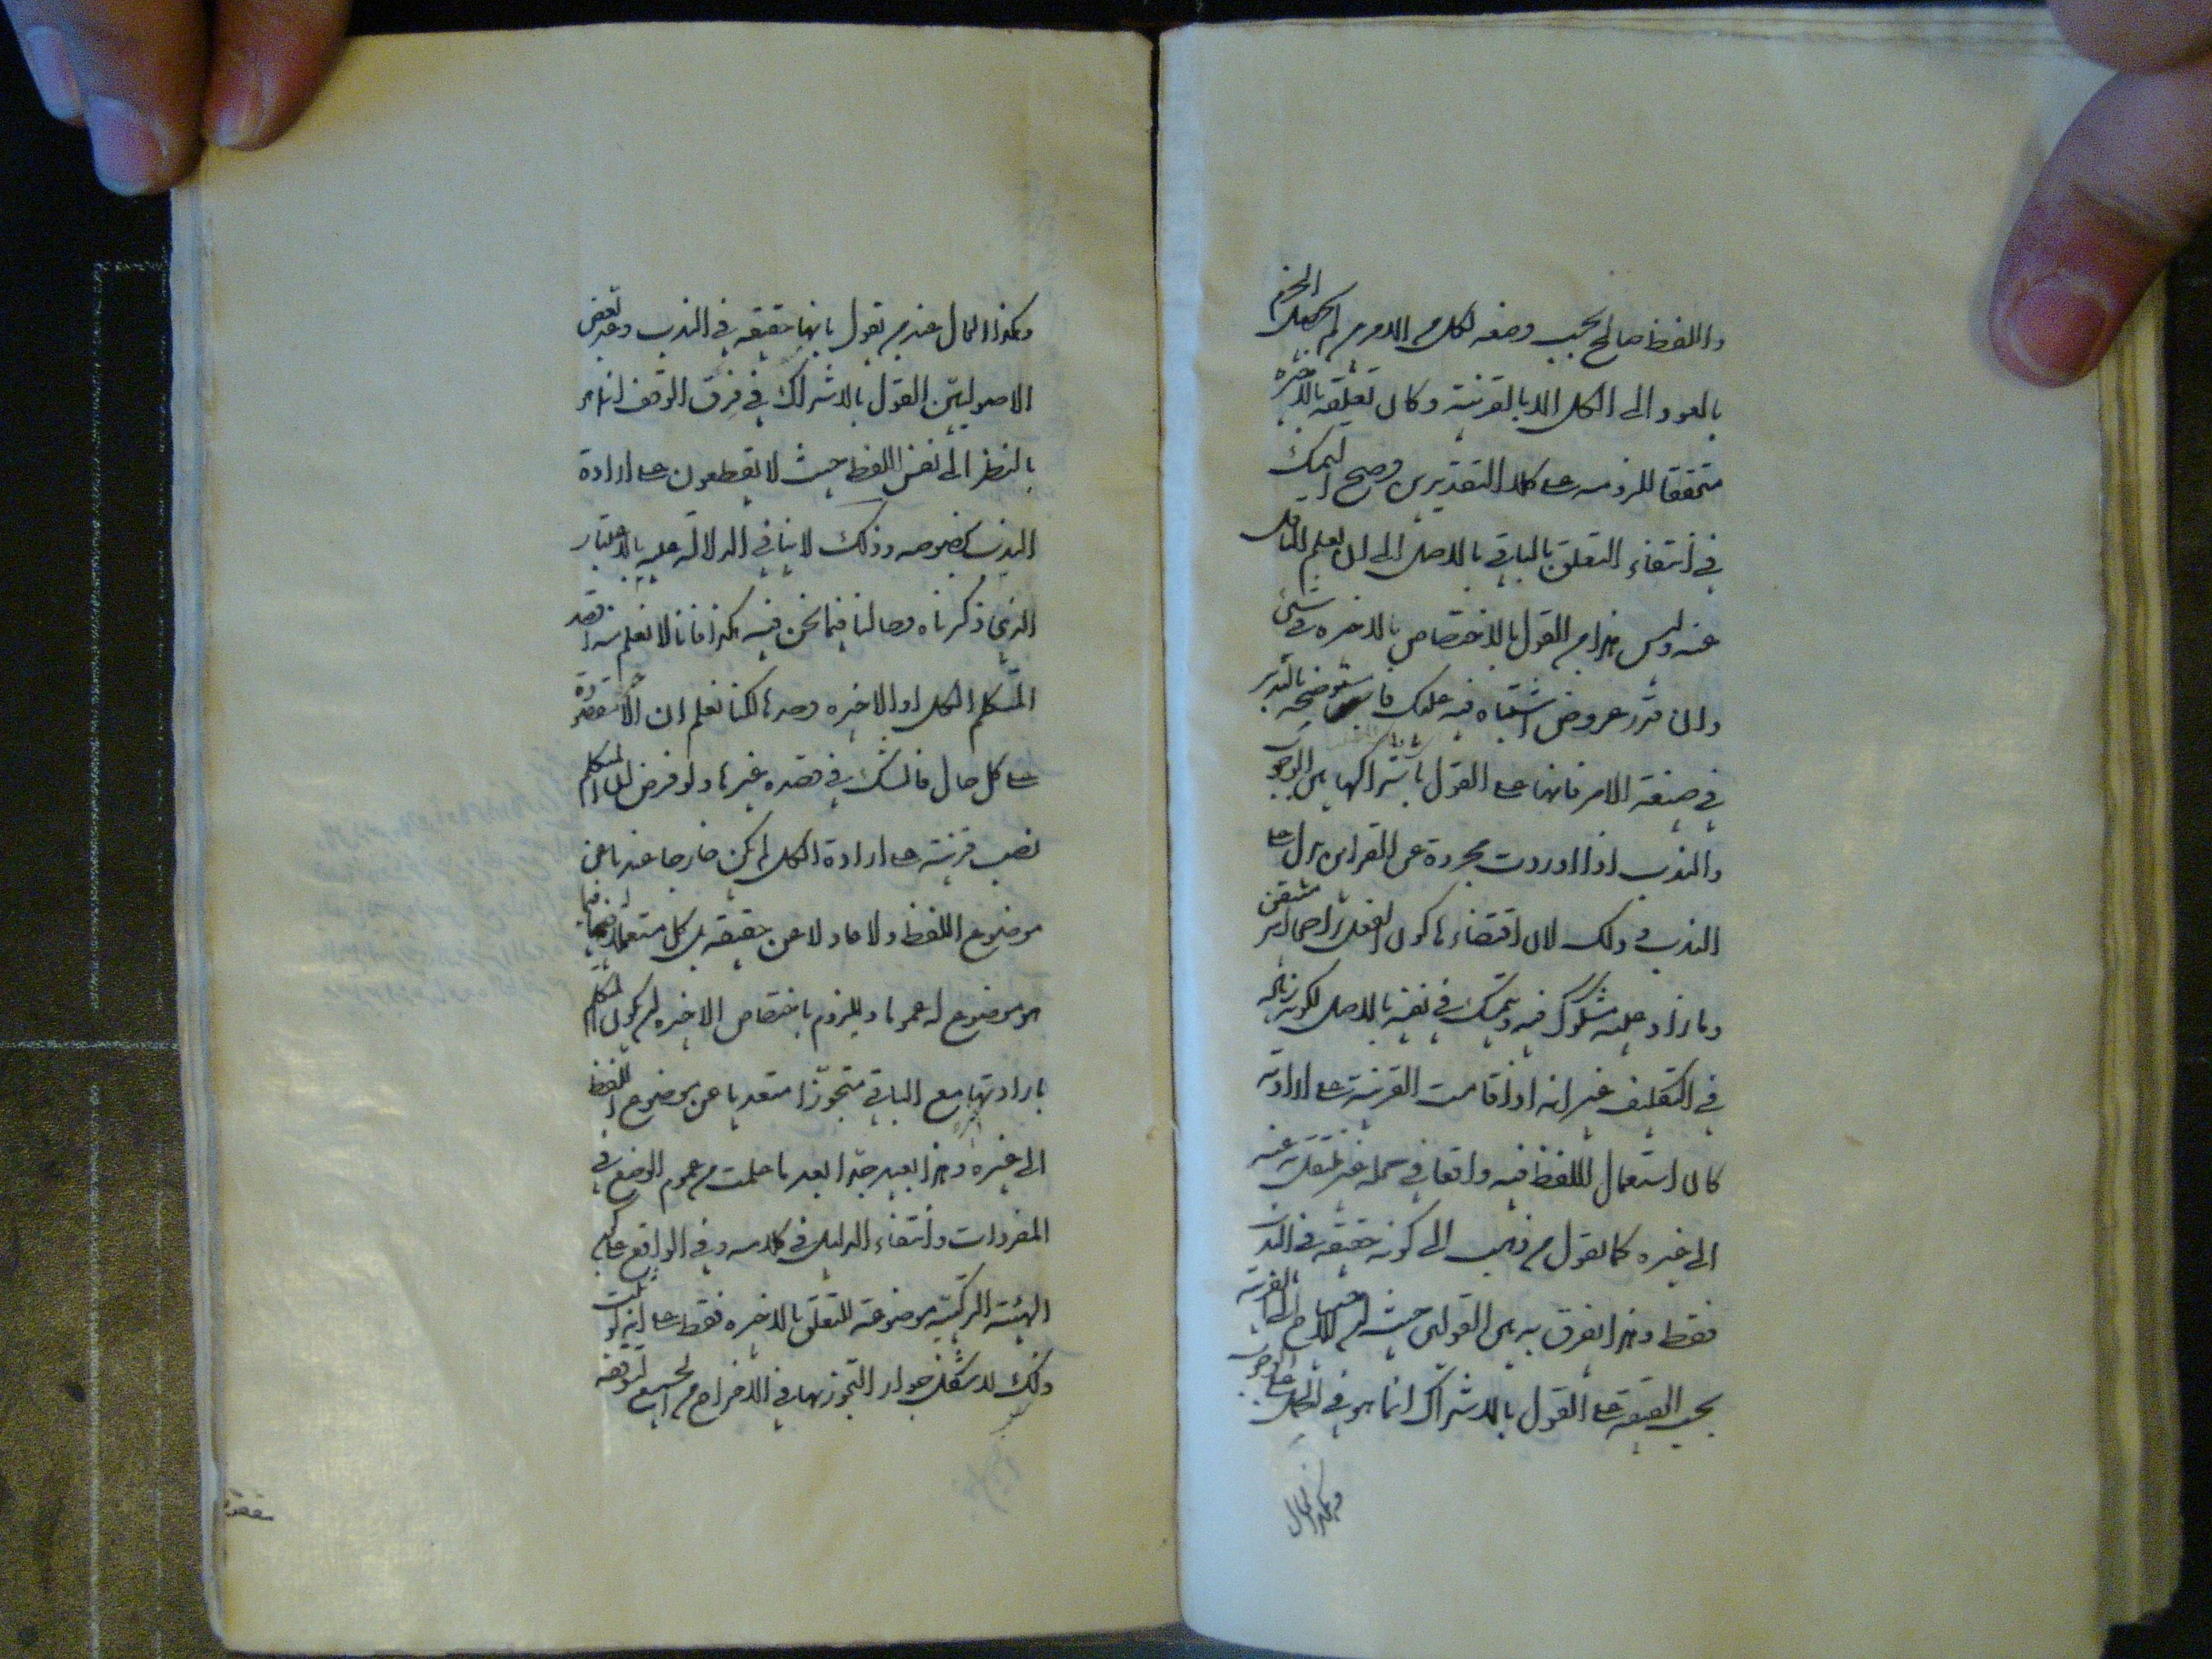 واللفظ صالح بحسب وضعه لكل من الامرين لم يحصل الجزم
بالعود الى الكل الا بالقرينة وكان تعلقه بالاخيرة
متحققا للزومه على كلا التقديرين وصح التمسك
في انتفاء التعلق بالباقي بالاصل الى ان يعلم الناقل
عنه وليس هذا من القول بالاختصاص بالاخيرة في شئ
وان قدر عروض اشتباه فيه عليك فاستوضحه بالتدبر
في صيغة الامر فانها على القول باشتراكها بين الوجوب
والندب اذا وردت مجردة عن القرائن يدل على
الندب وذلك لان اقتضاءها كون الفعل راجحا امر متيقن
وما زاد عليه مشكوك فيه ويتمسك في نفيه بالاصل لكونه زيادة
في التكليف غير انه اذا قامت القرينة على ارادته
كان استعمال اللفظ فيه واقعا في محله غير منتقل به عنه
الى غيره كما يقول من ذهب الى كونه حقيقة في الندب
فقط وهذا يفرق به بين القولين حيث ان الاحتياج الى القرينة
بحسب الحقيقة على القول بالاشتراك انما هو في الحمل على الوجوب
وهكذا الحال
وهكذا الحال عند من يقول بانها حقيقة في الندب وعد بعض
الاصوليين القول بالاشتراك في فرق الوقف انما هو
بالنظر الى نفس اللفظ حيث لا يقطعون على ارادة
الندب بخصوصه وذلك لا ينافي الدلالة عليه بالاعتبار
الذي ذكرناه وحالنا فيما نحن فيه هكذا فانا لا نعلم قصد
المتكلم الكل او الاخيرة وحدها لكنا نعلم ان الاخيرة مقصودة
على كل حال فالشك في قصده غيرها ولو فرض ان المتكلم
نصب قرينة على ارادة الكل لم يكن خارجا عندنا عن
موضوع اللفظ ولا عادلا عن حقيقته بل كل مستعملا له فيما
هو موضوع له عموما ويلزم من باختصاص الاخيرة ان يكون المتكلم
بارادتها مع الباقي متجوزا متعديا عن موضوع اللفظ
الى غيره وهذا بعيد جدا بعد ما علمت من عموم الوضع في
المفردات وانتفاء الدليل في كلامه وفي الواقع على كون
الهيئة التركيبية موضوعة للتعلق بالاخيرة فقط على انه لو ثبت
ذلك لاشكل جواز التجوز بها في الاخراج من الجميع لتوقفه